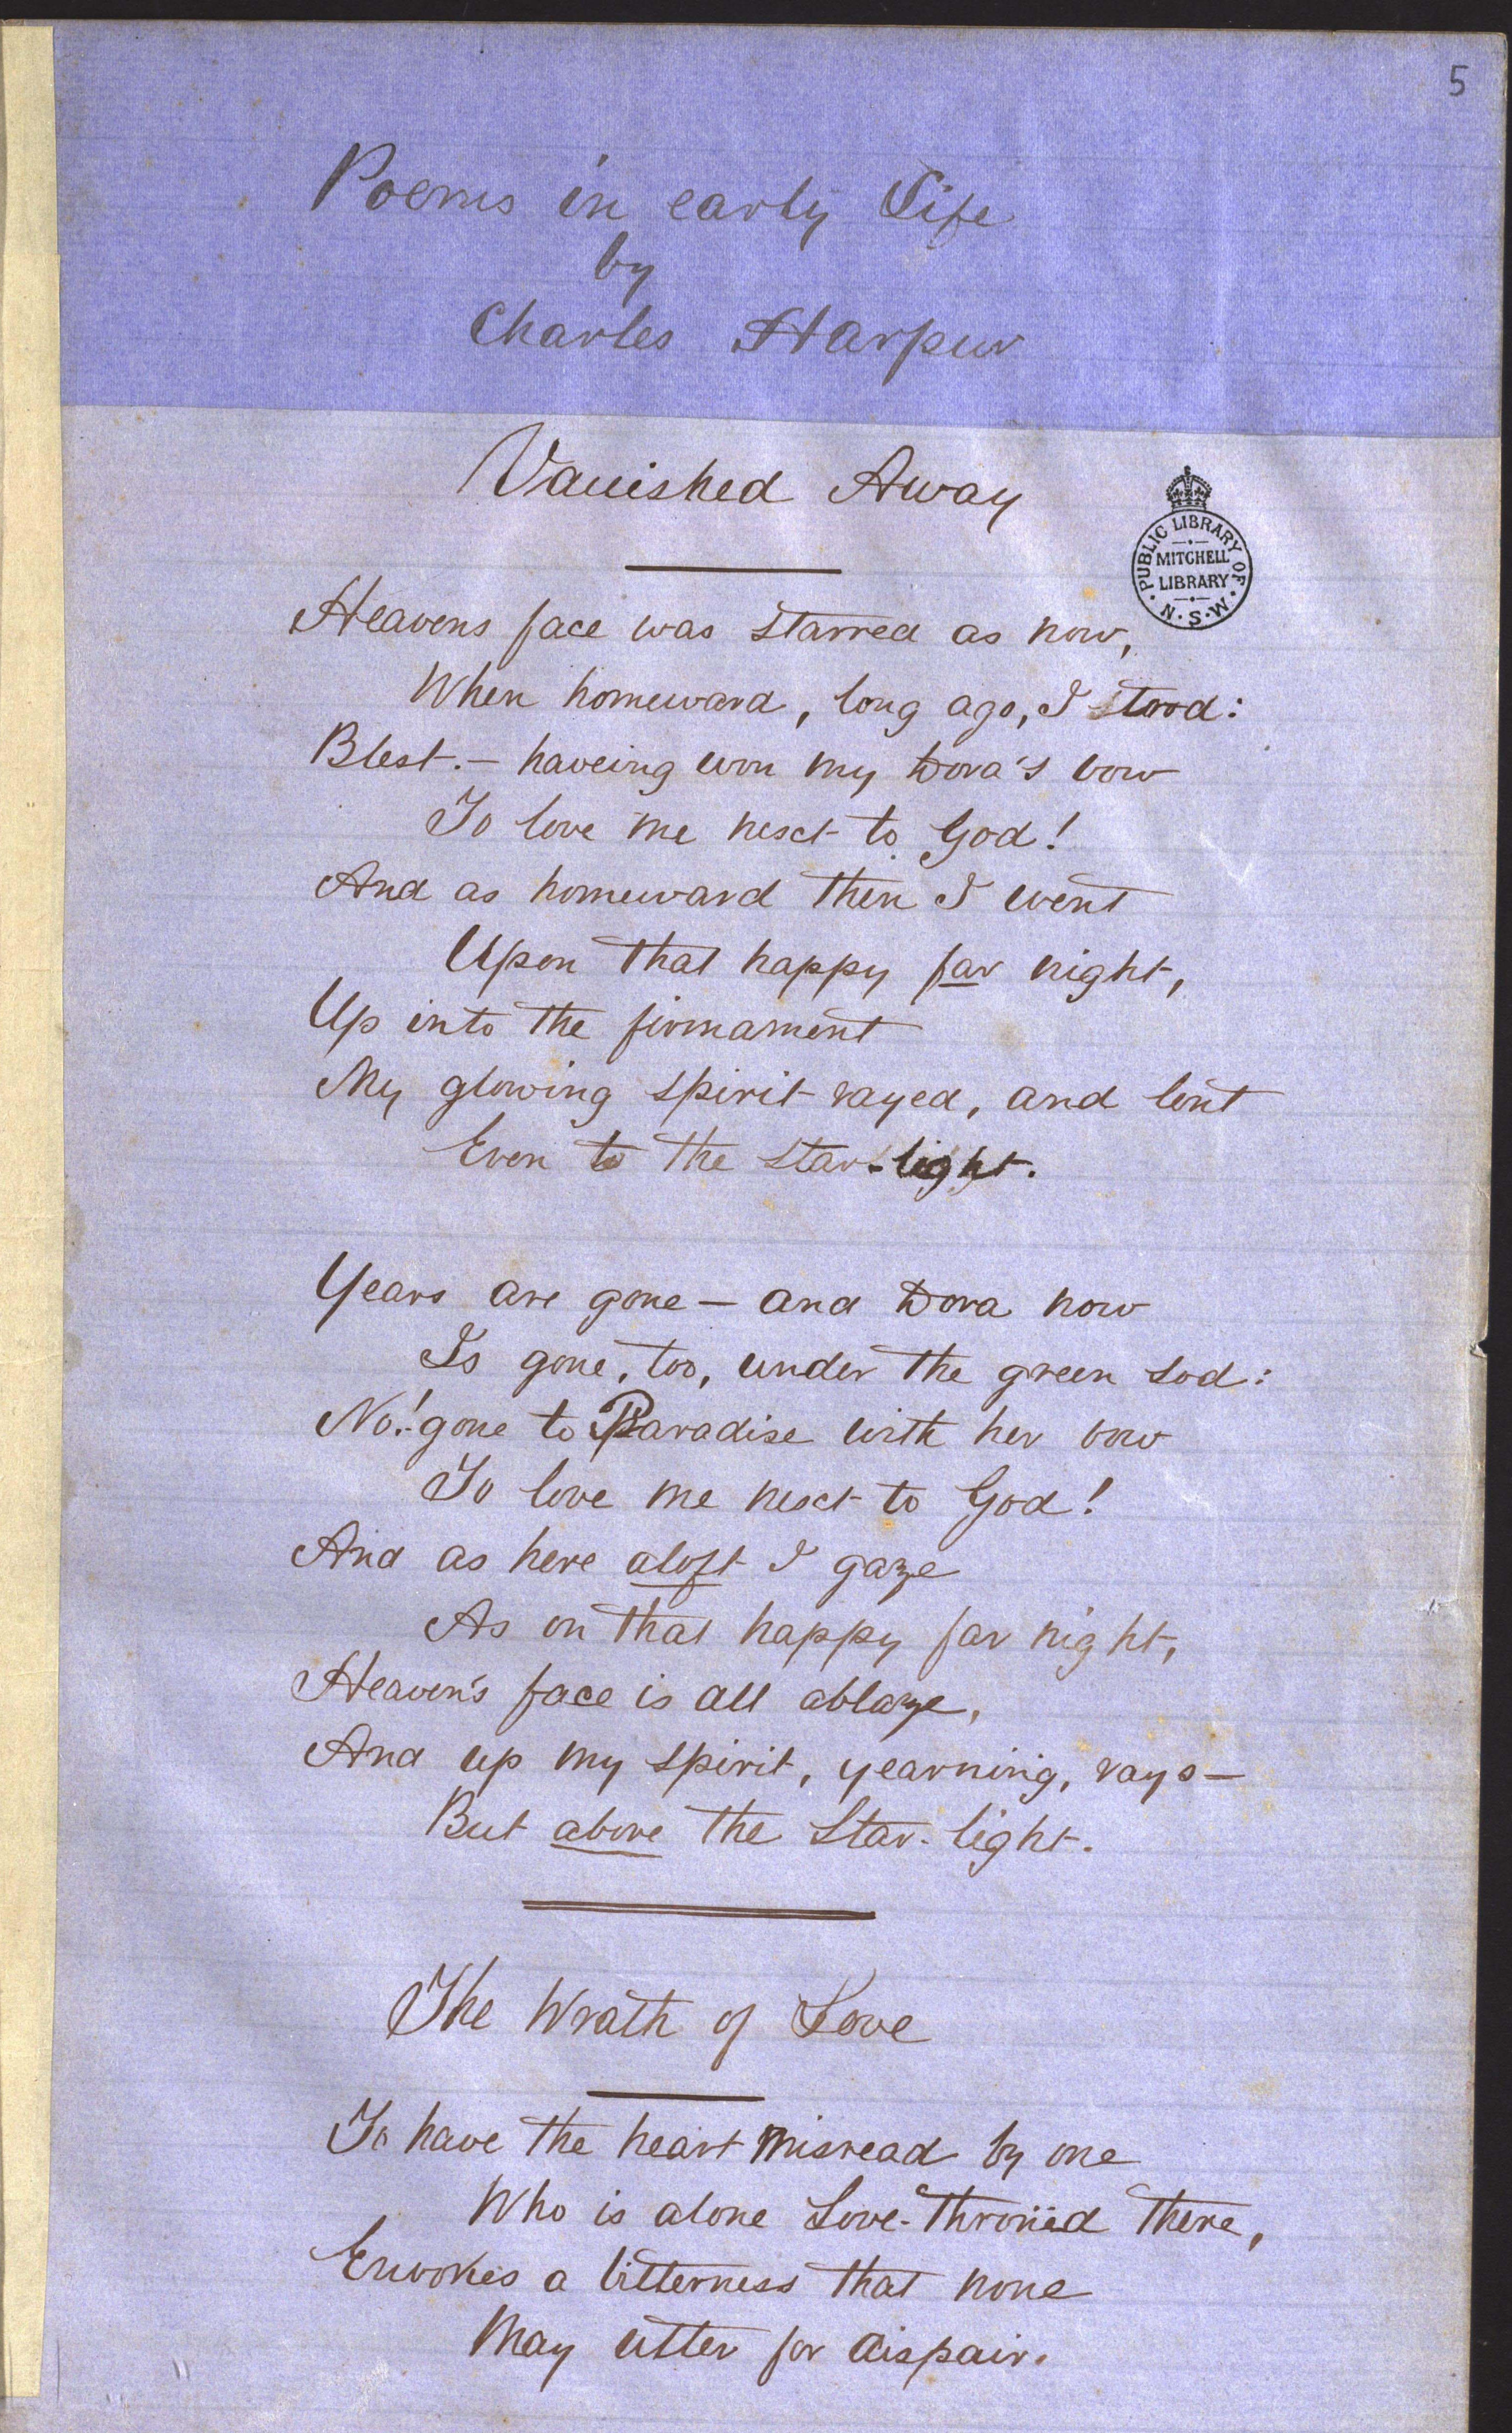 5
Poems in early Life
by
Charles Harpur
Vanished Away
PUBLIC LIBRARY OF N.S.W.
MITCHELL
LIBRARY
Heavens face was starred as now,
When homeward, long ago, I stood:
Blest. — haveing won my Dora's vow
To love me next to God!
And as homeward then I went
Upon that happy far night,
Up into the firmament
My glowing spirit rayed, and lent
Even to the star-light.
Years are gone — and Dora now
Is gone, too, under the green sod:
No! gone to Paradise with her vow
To love me next to God!
And as here aloft I gaze
As on that happy far night,
Heaven's face is all ablaze,
And up my spirit, yearning, rays —
But above the Star-light.
The Wrath of Love
To have the heart misread by one
Who is alone Love-throned there,
a bitterness that none
May utter for dispair.